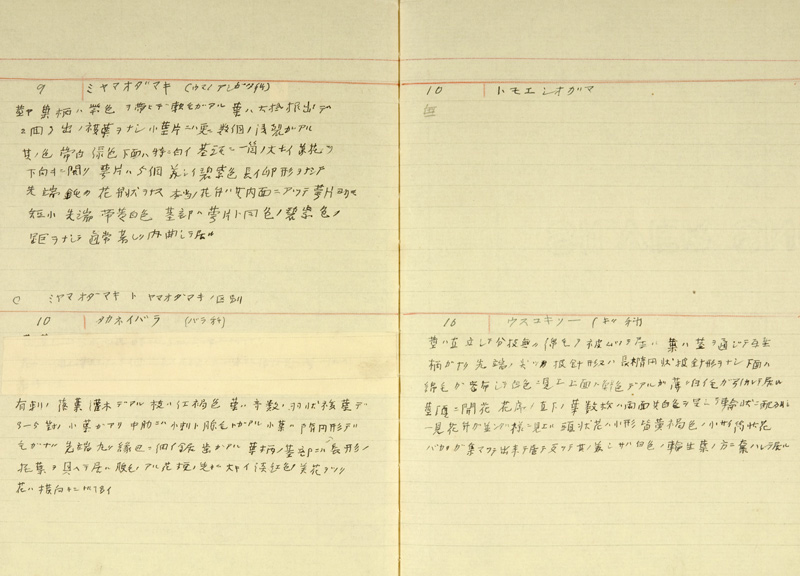 9 ミヤマオダマキ (ウマノアシガタ科)
茎や葉柄ハ紫色ヲ帯ビテ軟毛ガアル 葉ハ大抵根出デ
2回3出ノ複葉ヲナシ小葉片ニハ更ニ数個ノ浅裂ガアル
其ノ色帯白緑色下面ハ特ニ白イ 茎頭ニ一箇ノ大キイ美花ヲ
下向キニ開ク 萼片ハ5個 美シイ碧紫色 長イ卵形ヲナシテ
先端鈍ク 花弁状ヲナス 本当ノ花弁ハ其内面ニアツテ萼片ヨリモ
短小 先端 帯黄白色 基部ハ萼片ト同色ノ碧紫色ノ
距ヲナシテ 通常著シク内曲シテ居ル
○ ミヤマオダマキ ト ヤマオダマキノ区別
10 タカネイバラ (バラ科)
有刺ノ落葉灌木デアル 枝ハ紅褐色 葉ハ奇数ノ羽状複葉デ
小葉ガアリ 中肋ニハ小刺ト腺毛トガアル 小葉ハ楕円形デ
毛ガナク 先端丸ク縁辺ニ細イ鋸歯ガアル 葉柄ノ基部ニハ長形ノ
托葉ヲ具ヘテ居ル 腺毛ノアル花梗ノ先ニ大キイ淡紅色ノ美花ヅク
花ハ横向キニ
10 トモエシオガマ
16 ウスユキソー (キク科)
茎ハ直立シテ分枝無ク綿毛ヲ被ムツテ居ル 葉ハ茎ヲ通ジテ互生
柄ガナク 先端ノ尖ツタ披針形又ハ長楕円状披針形ヲナシ下面ハ
綿毛ガ密布シテ白色ニ見エ上面ハ緑色デアルガ薄ク白毛ガ
茎頂ニ開花 花序ノ直下ノ葉数枚ハ両面共白色ヲ呈シテ輪状ニ配列シ
一見花弁ガ並ンダ様ニ見エル 頭状花ハ小形 皆黄褐色ノ小サイ筒状花
バカリガ集マツテ出来テ居テ反ツテ其ノ美シサハ白色ノ輪生葉ノ方ニ奪ハレテ居ル